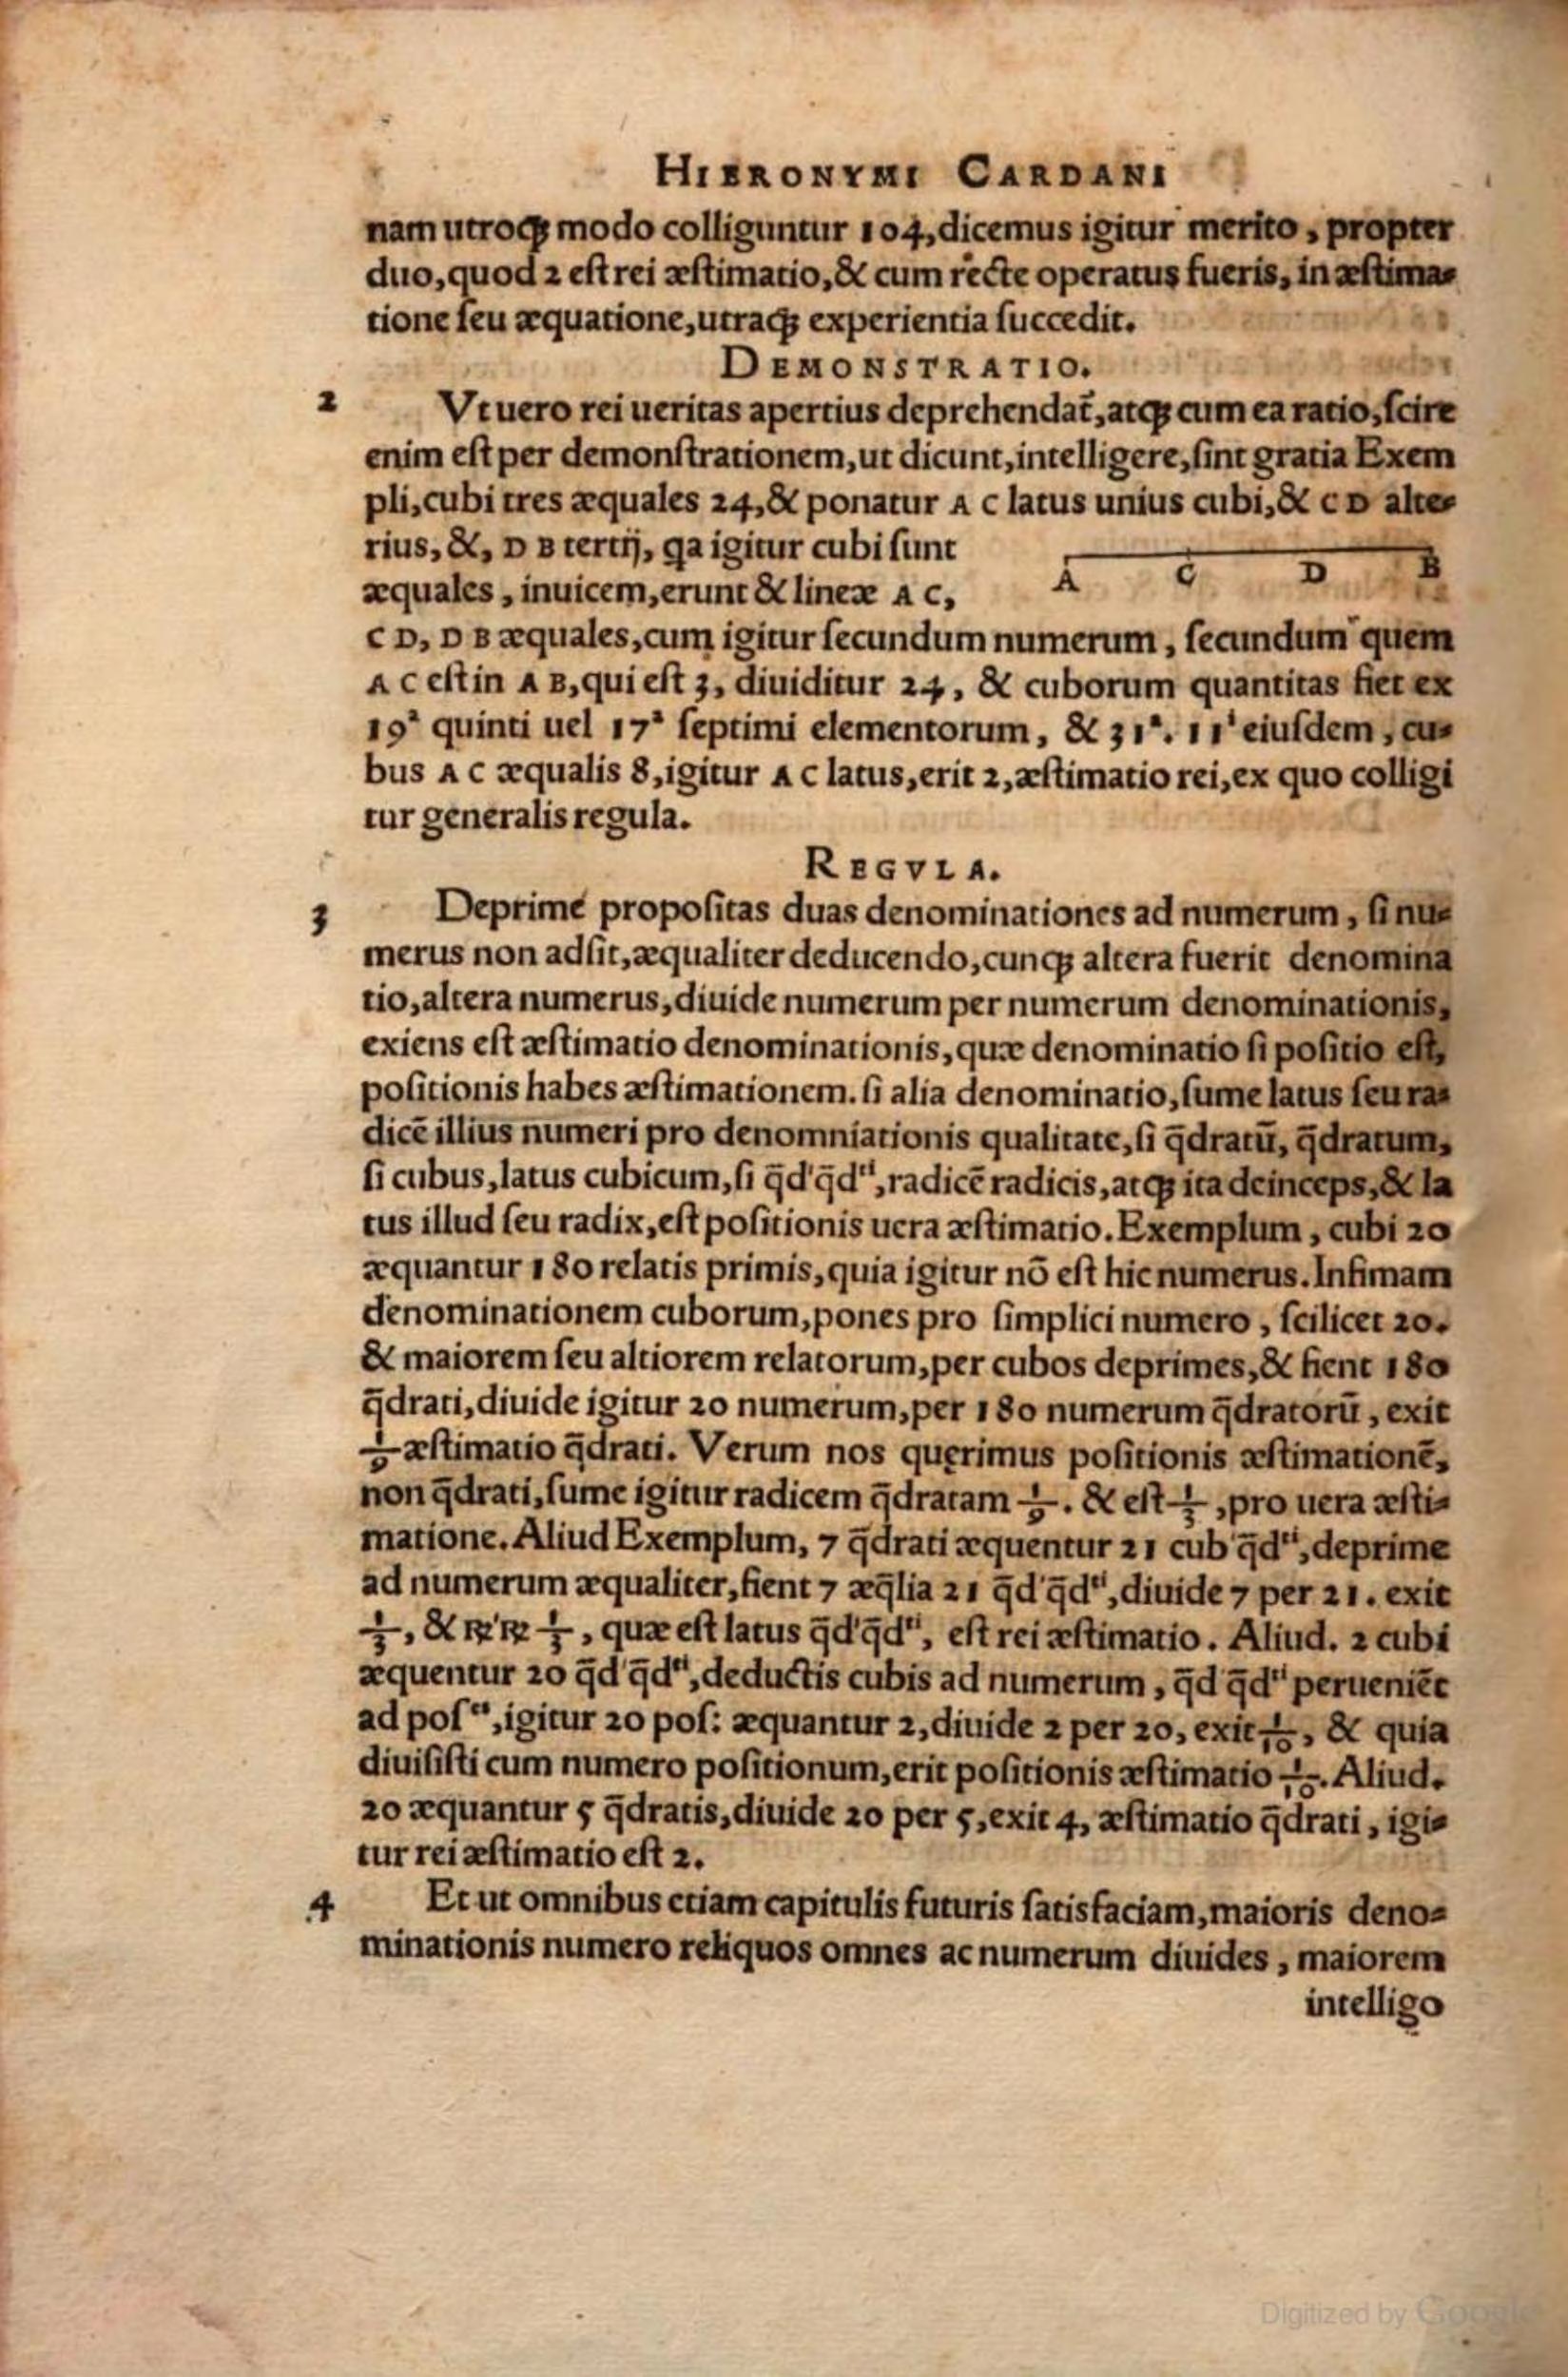 HIERONYMI CARDANI
nam utroqꝫ modo colliguntur 104, dicemus igitur merito, propter
duo, quod 2 est rei æstimatio, & cum recte operatus fueris, in æstima-
tione seu æquatione, utraqꝫ experientia succedit.
DEMONSTRATIO.
2 Vt uero rei ueritas apertius deprehendat̃, atqꝫ cum ea ratio, scire
enim est per demonstrationem, ut dicunt, intelligere, sint gratia Exem
pli, cubi tres æquales 24, & ponatur A C latus unius cubi, & C D alte-
rius, &, D B tertij, q̃a igitur cubi sunt
æquales, inuicem, erunt & lineæ A C,
A C D B
C D, D B æquales, cum igitur secundum numerum, secundum quem
A C est in A B, qui est 3, diuiditur 24, & cuborum quantitas fiet ex
19ª quinti uel 17ª septimi elementorum, & 31ª. 11ⁱ eiusdem, cu-
bus A C æqualis 8, igitur A C latus, erit 2, æstimatio rei, ex quo colligi
tur generalis regula.
REGVLA.
3 Deprime propositas duas denominationes ad numerum, si nu-
merus non adsit, æqualiter deducendo, cunqꝫ altera fuerit denomina
tio, altera numerus, diuide numerum per numerum denominationis,
exiens est æstimatio denominationis, quæ denominatio si positio est,
positionis habes æstimationem. si alia denominatio, sume latus seu ra-
dicē illius numeri pro denomniationis qualitate, si q̃dratū, q̃dratum,
si cubus, latus cubicum, si q̃d'q̃dᵗⁱ, radicē radicis, atqꝫ ita deinceps, & la
tus illud seu radix, est positionis uera æstimatio. Exemplum, cubi 20
æquantur 180 relatis primis, quia igitur nō est hic numerus. Infimam
denominationem cuborum, pones pro simplici numero, scilicet 20.
& maiorem seu altiorem relatorum, per cubos deprimes, & fient 180
q̃drati, diuide igitur 20 numerum, per 180 numerum q̃dratorū, exit
1/9 æstimatio q̃drati. Verum nos quęrimus positionis æstimationē,
non q̃drati, sume igitur radicem q̃dratam 1/9. & est 1/3, pro uera æsti-
matione. Aliud Exemplum, 7 q̃drati æquentur 21 cub'q̃dᵗⁱ, deprime
ad numerum æqualiter, fient 7 æq̃lia 21 q̃d'q̃dᵗⁱ, diuide 7 per 21. exit
1/3, & ℞'℞ 1/3, quæ est latus q̃d'q̃dᵗⁱ, est rei æstimatio. Aliud. 2 cubi
æquentur 20 q̃d q̃dᵗⁱ, deductis cubis ad numerum, q̃d q̃dᵗⁱ perueniēt
ad posᵗⁱ, igitur 20 pos: æquantur 2, diuide 2 per 20, exit 1/10, & quia
diuisisti cum numero positionum, erit positionis æstimatio 1/10. Aliud.
20 æquantur 5 q̃dratis, diuide 20 per 5, exit 4, æstimatio q̃drati, igi-
tur rei æstimatio est 2.
4 Et ut omnibus etiam capitulis futuris satisfaciam, maioris deno-
minationis numero reliquos omnes ac numerum diuides, maiorem
intelligo
Digitized by Google